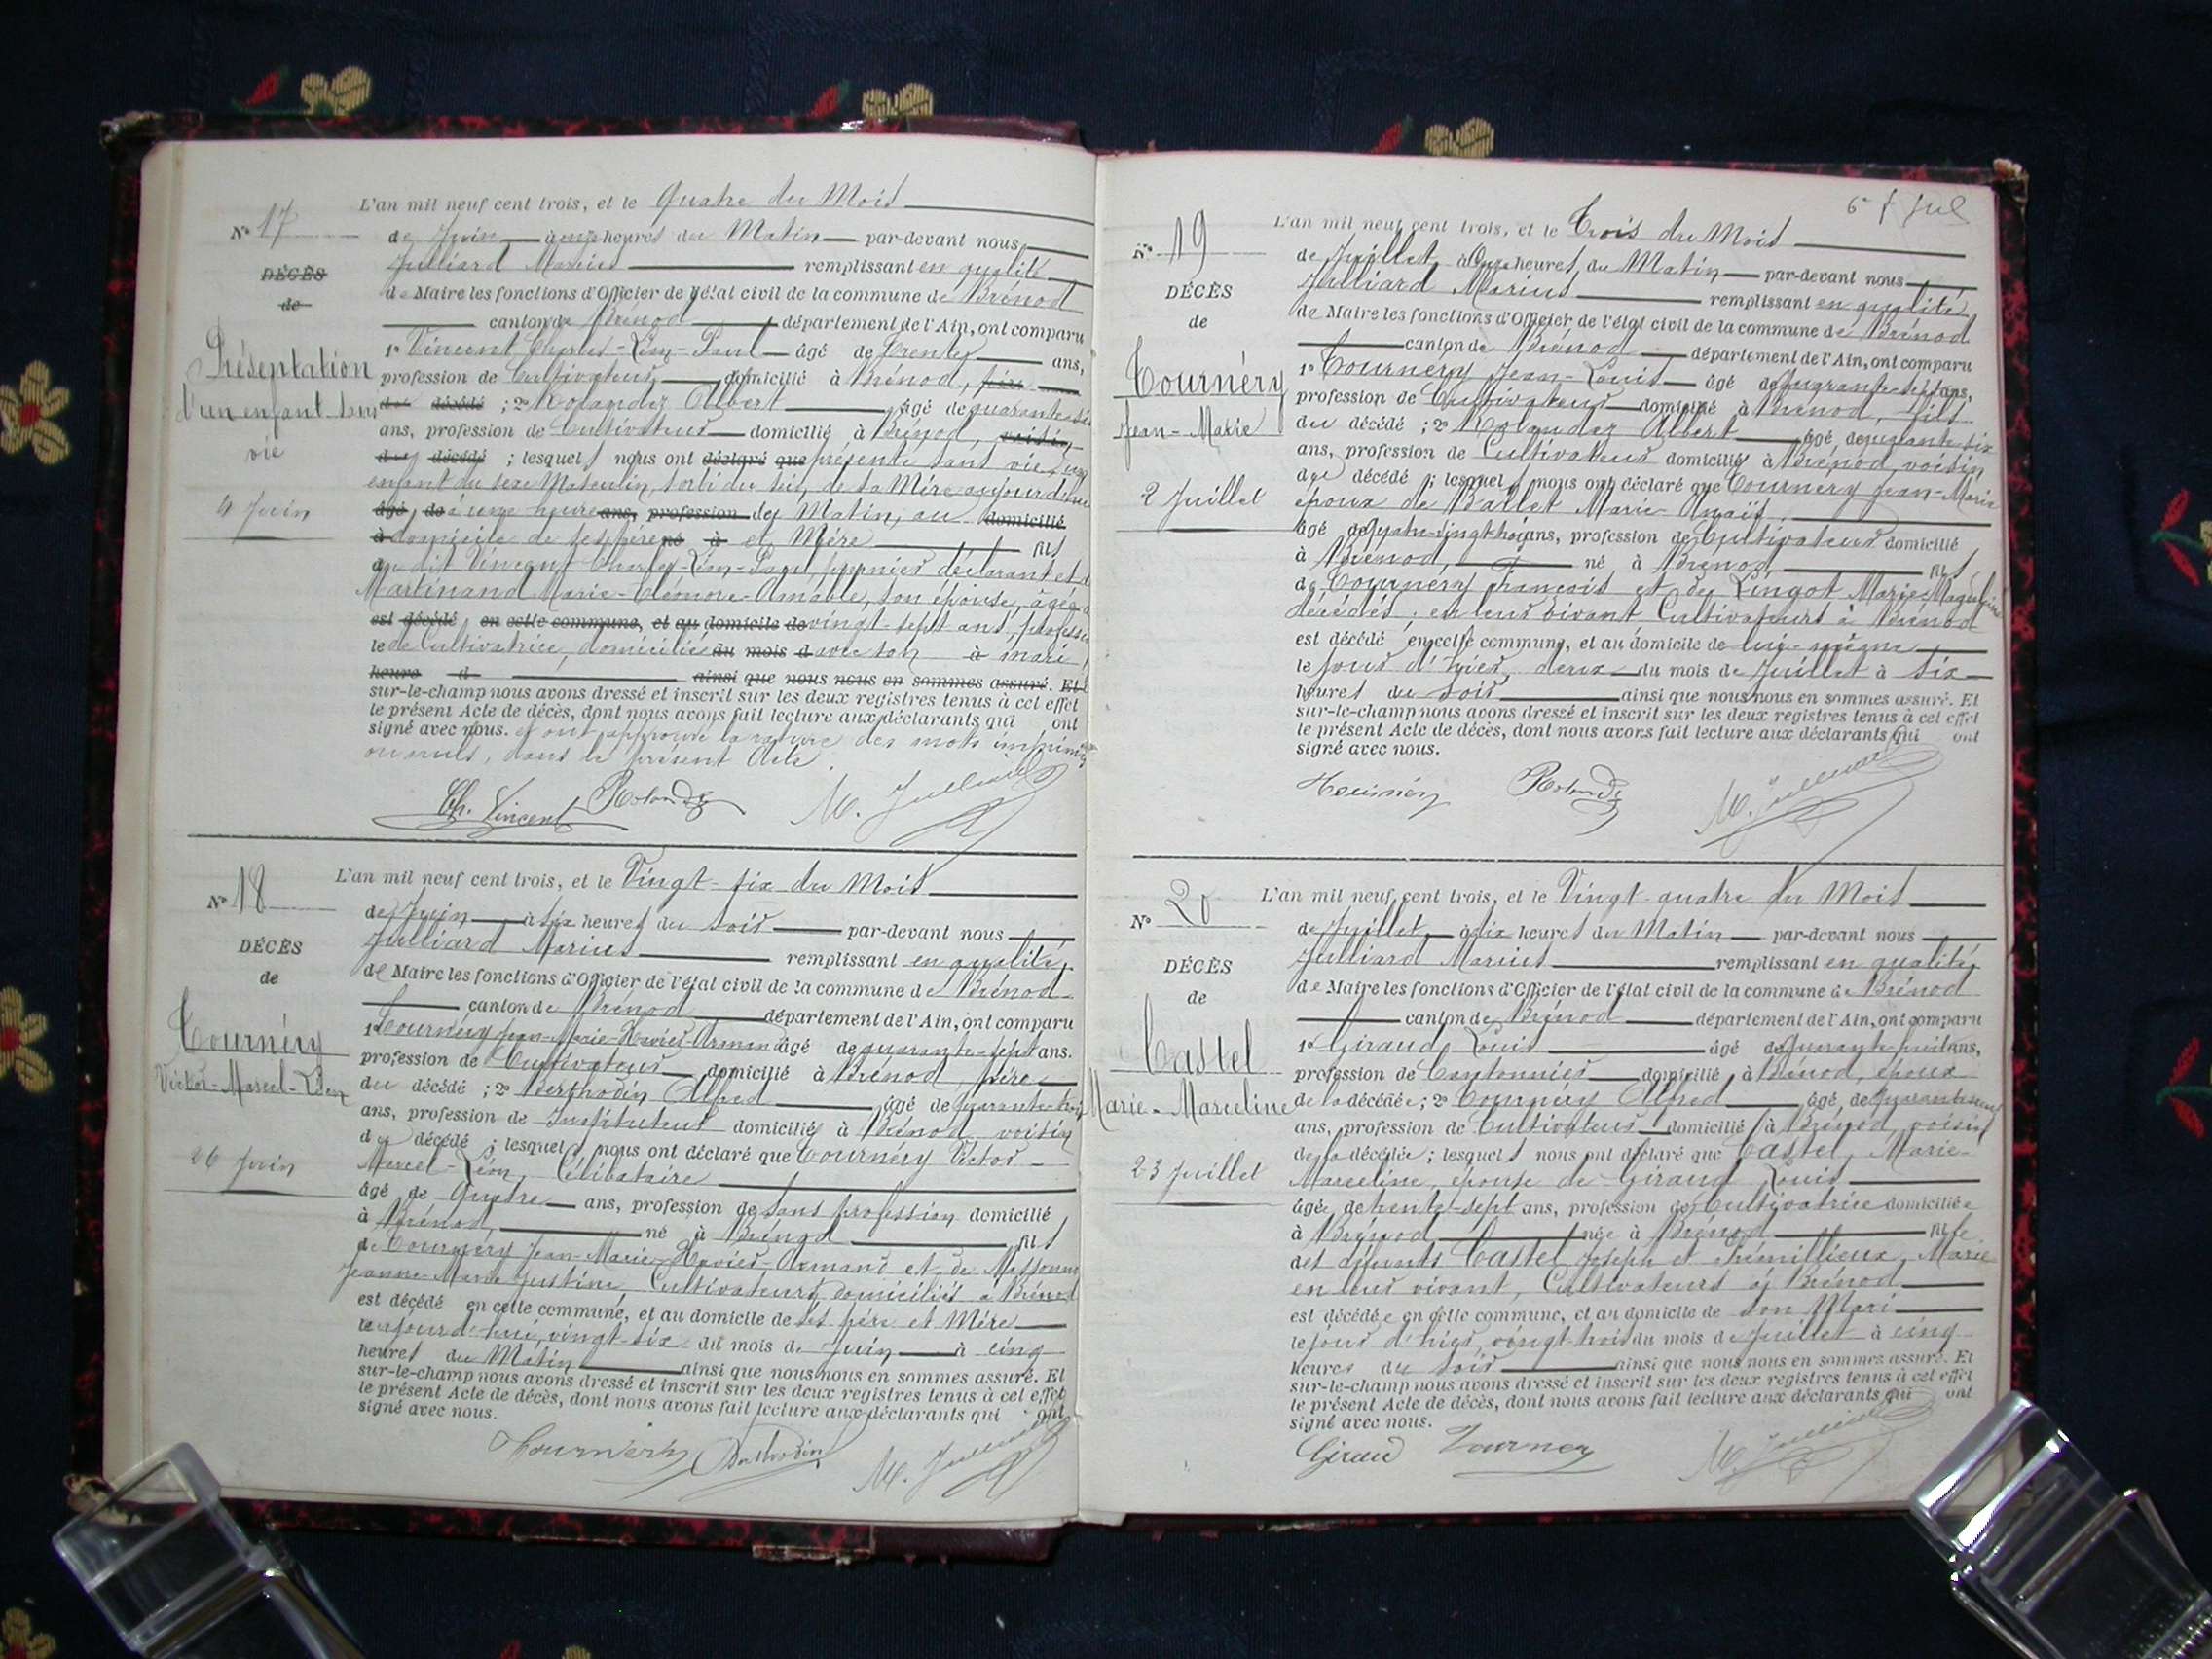 N° 17
DÉCÈS
de
Présentation
d'un enfant sans
vie
4 Juin
L'an mil neuf cent trois, et le Quatre du Mois
de Juin à onze heures du Matin par-devant nous
Julliard Marius remplissant en qualité
de Maire les fonctions d'Officier de l'état civil de la commune de Brénod
canton de Brénod département de l'Ain, ont comparu
1° Vincent Charles-Léon-Paul âgé de trente ans,
profession de Cultivateur domicilié à Brénod, père
du décédé ; 2° Rolandez Albert âgé de quarante-six
ans, profession de Cultivateur domicilié à Brénod, voisin
du décédé ; lesquels nous ont déclaré que présenté sans vie, un
enfant du sexe Masculin, sorti du sein de sa Mère aujourd'hui
âgé de à une heure ans, profession de du Matin, au domicilié
à domicile de ses père né à et Mère fils
du dit Vincent Charles-Léon-Paul, premier déclarant et de
Martinand Marie-Eléonore-Amable, son épouse, âgée de
est décédé en cette commune, et au domicile de vingt-sept ans, profession
le de Cultivatrice, domiciliée du mois d avec son à mari,
heure d ainsi que nous nous en sommes assuré. Et
sur-le-champ nous avons dressé et inscrit sur les deux registres tenus à cet effet
le présent Acte de décès, dont nous avons fait lecture aux déclarants qui ont
signé avec nous. et ont approuvé la rature des mots imprimés
ou nuls, dans le présent Acte.
Ch. Vincent Rolandez M. Julliard
N° 18
DÉCÈS
de
Tournéry
Victor-Marcel-Léon
26 Juin
L'an mil neuf cent trois, et le Vingt-six du Mois
de Juin à six heures du soir par-devant nous
Julliard Marius remplissant en qualité
de Maire les fonctions d'Officier de l'état civil de la commune de Brénod
canton de Brénod département de l'Ain, ont comparu
1° Tournéry Jean-Marie-Xavier-Armand âgé de quarante-sept ans.
profession de Cultivateur domicilié à Brénod, père
du décédé ; 2° Berthodin Alfred âgé de quarante-trois
ans, profession de Instituteur domicilié à Brénod voisin
du décédé ; lesquels nous ont déclaré que Tournéry Victor-
Marcel-Léon, Célibataire
âgé de Quatre ans, profession de sans profession domicilié
à Brénod, né à Brénod fils
de Tournéry Jean-Marie-Xavier-Armand et de
Jeanne-Marie-Justine, Cultivateurs domiciliés à Brénod
est décédé en cette commune, et au domicile de ses père et Mère
le aujourd'hui, vingt-six du mois de Juin à cinq
heures du Matin ainsi que nous nous en sommes assuré. Et
sur-le-champ nous avons dressé et inscrit sur les deux registres tenus à cet effet
le présent Acte de décès, dont nous avons fait lecture aux déclarants qui ont
signé avec nous.
Tournéry Berthodin M. Julliard
N° 19
DÉCÈS
de
Tournéry
Jean-Marie
2 Juillet
L'an mil neuf cent trois, et le Trois du Mois
de Juillet, à Onze heures du Matin par-devant nous
Julliard Marius remplissant en qualité
de Maire les fonctions d'Officier de l'état civil de la commune de Brénod
canton de Brénod département de l'Ain, ont comparu
1° Tournéry Jean-Louis âgé de quarante-sept ans,
profession de Cultivateur domicilié à Brénod, fils
du décédé ; 2° Rolandez Albert âgé de quarante-six
ans, profession de Cultivateur domicilié à Brénod, voisin
du décédé ; lesquels nous ont déclaré que Tournéry Jean-Marie
époux de Ballet Marie-Anaïs,
âgé de quatre-vingt-trois ans, profession de Cultivateur domicilié
à Brénod, né à Brénod fils
de Tournéry François et de Lingot Marie-Magdeleine
décédés, en leur vivant Cultivateurs à Brénod
est décédé en cette commune, et au domicile de lui-même
le jour d'hier, deux du mois de Juillet à six
heures du soir ainsi que nous nous en sommes assuré. Et
sur-le-champ nous avons dressé et inscrit sur les deux registres tenus à cet effet
le présent Acte de décès, dont nous avons fait lecture aux déclarants qui ont
signé avec nous.
Tournéry Rolandez M. Julliard
N° 20
DÉCÈS
de
Castel
Marie-Marceline
23 Juillet
L'an mil neuf cent trois, et le Vingt-quatre du Mois
de Juillet à dix heures du Matin par-devant nous
Julliard Marius remplissant en qualité
de Maire les fonctions d'Officier de l'état civil de la commune de Brénod
canton de Brénod département de l'Ain, ont comparu
1° Giraud Louis âgé de quarante-huit ans,
profession de Cantonnier domicilié à Brénod, époux
de la décédée ; 2° Tournéry Alfred âgé de
ans, profession de Cultivateur domicilié à Brénod, voisin
de la décédée ; lesquels nous ont déclaré que Castel, Marie-
Marceline, épouse de Giraud Louis
âgée de trente-sept ans, profession de Cultivatrice domiciliée
à Brénod née à Brénod fille
des défunts Castel Joseph et Trémillieux, Marie
en leur vivant, Cultivateurs à Brénod
est décédée en cette commune, et au domicile de son Mari
le jour d'hier, vingt-trois du mois de Juillet à cinq
heures du soir ainsi que nous nous en sommes assuré. Et
sur-le-champ nous avons dressé et inscrit sur les deux registres tenus à cet effet
le présent Acte de décès, dont nous avons fait lecture aux déclarants qui ont
signé avec nous.
Giraud Tournéry M. Julliard